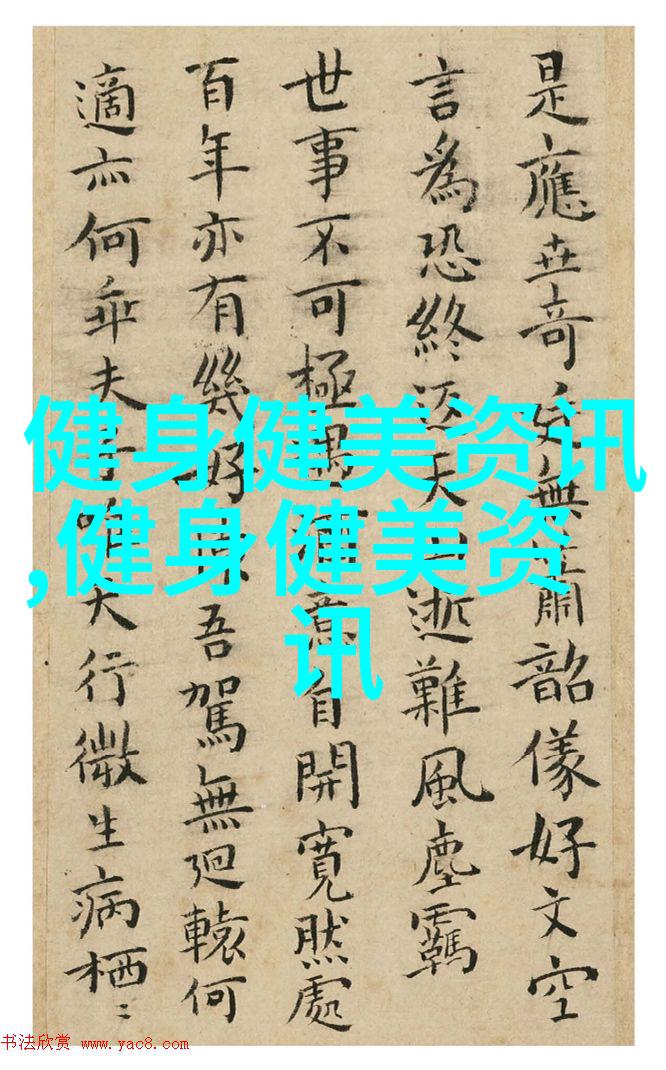 是應世奇文無簫韶儀好文空
言為恐終添天一逝難風塵羈
世事不可極遇有意自開寬然處
百年亦有幾好與吾駕無迴轅何
適亦何乖夫子唯大行微生病栖〻
健身健美资讯
,健身健美资
讯
书法欣赏 www.yac8.com